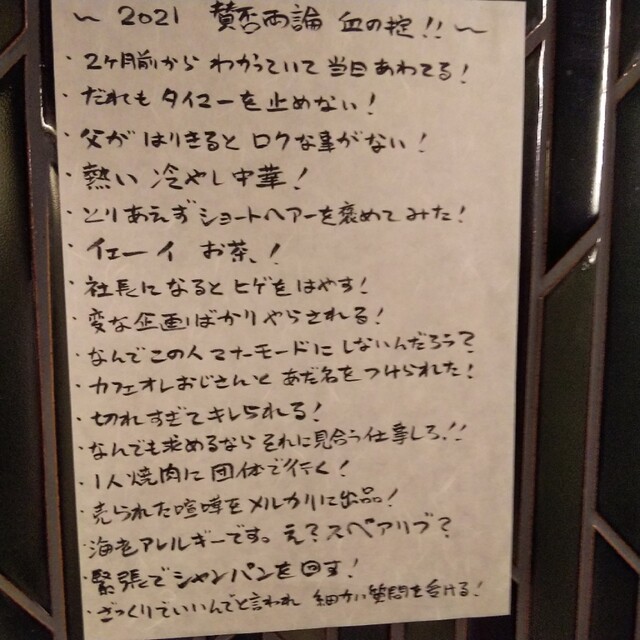 ～ 2021 賛否両論 血の掟!! ～
・2ヶ月前から わかっていて 当日あわてる!
・だれも タイマーを止めない!
・父が はりきると ロクな事がない!
・熱い 冷やし中華!
・とりあえず ショートヘアーを褒めてみた!
・イエーイ お茶、!
・社長になると ヒゲをはやす!
・変な企画ばかりやらされる!
・なんでこの人マナーモードに しないんだろう?
・カフェオレおじさんと あだ名を つけられた!
・切れすぎてキレられる!
・なんでも求めるなら それに見合う仕事しろ!!
・1人焼肉に 団体で行く!
・売られた喧嘩を メルカリに出品!
・海老アレルギーです。え?スペアリブ?
・緊張でシャンパンを回す!
・ざっくりでいいんでと言われ 細かい質問を受ける!